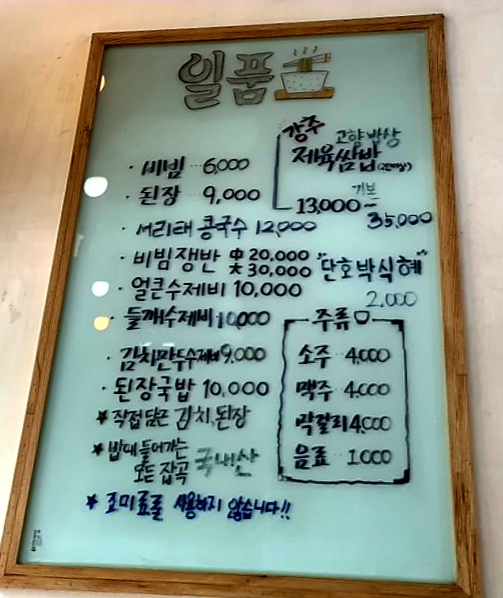 일품
강추 고향밥상
제육쌈밥(2인이상)
13,000 -
기본
35,000
· 비빔 ·· 6,000
· 된장 · 9,000
· 서리태 콩국수 12,000
· 비빔쟁반 中 20,000
大 30,000
"단호박식혜"
2,000
· 얼큰수제비 10,000
· 들깨수제비 10,000
· 김치만두수제비 9,000
· 된장국밥 10,000
주류
소주 4,000
맥주 4,000
막걸리 4,000
음료 1,000
* 직접 담근 김치, 된장
* 밥에 들어가는
모든 잡곡 국내산
* 조미료를 사용하지 않습니다!!